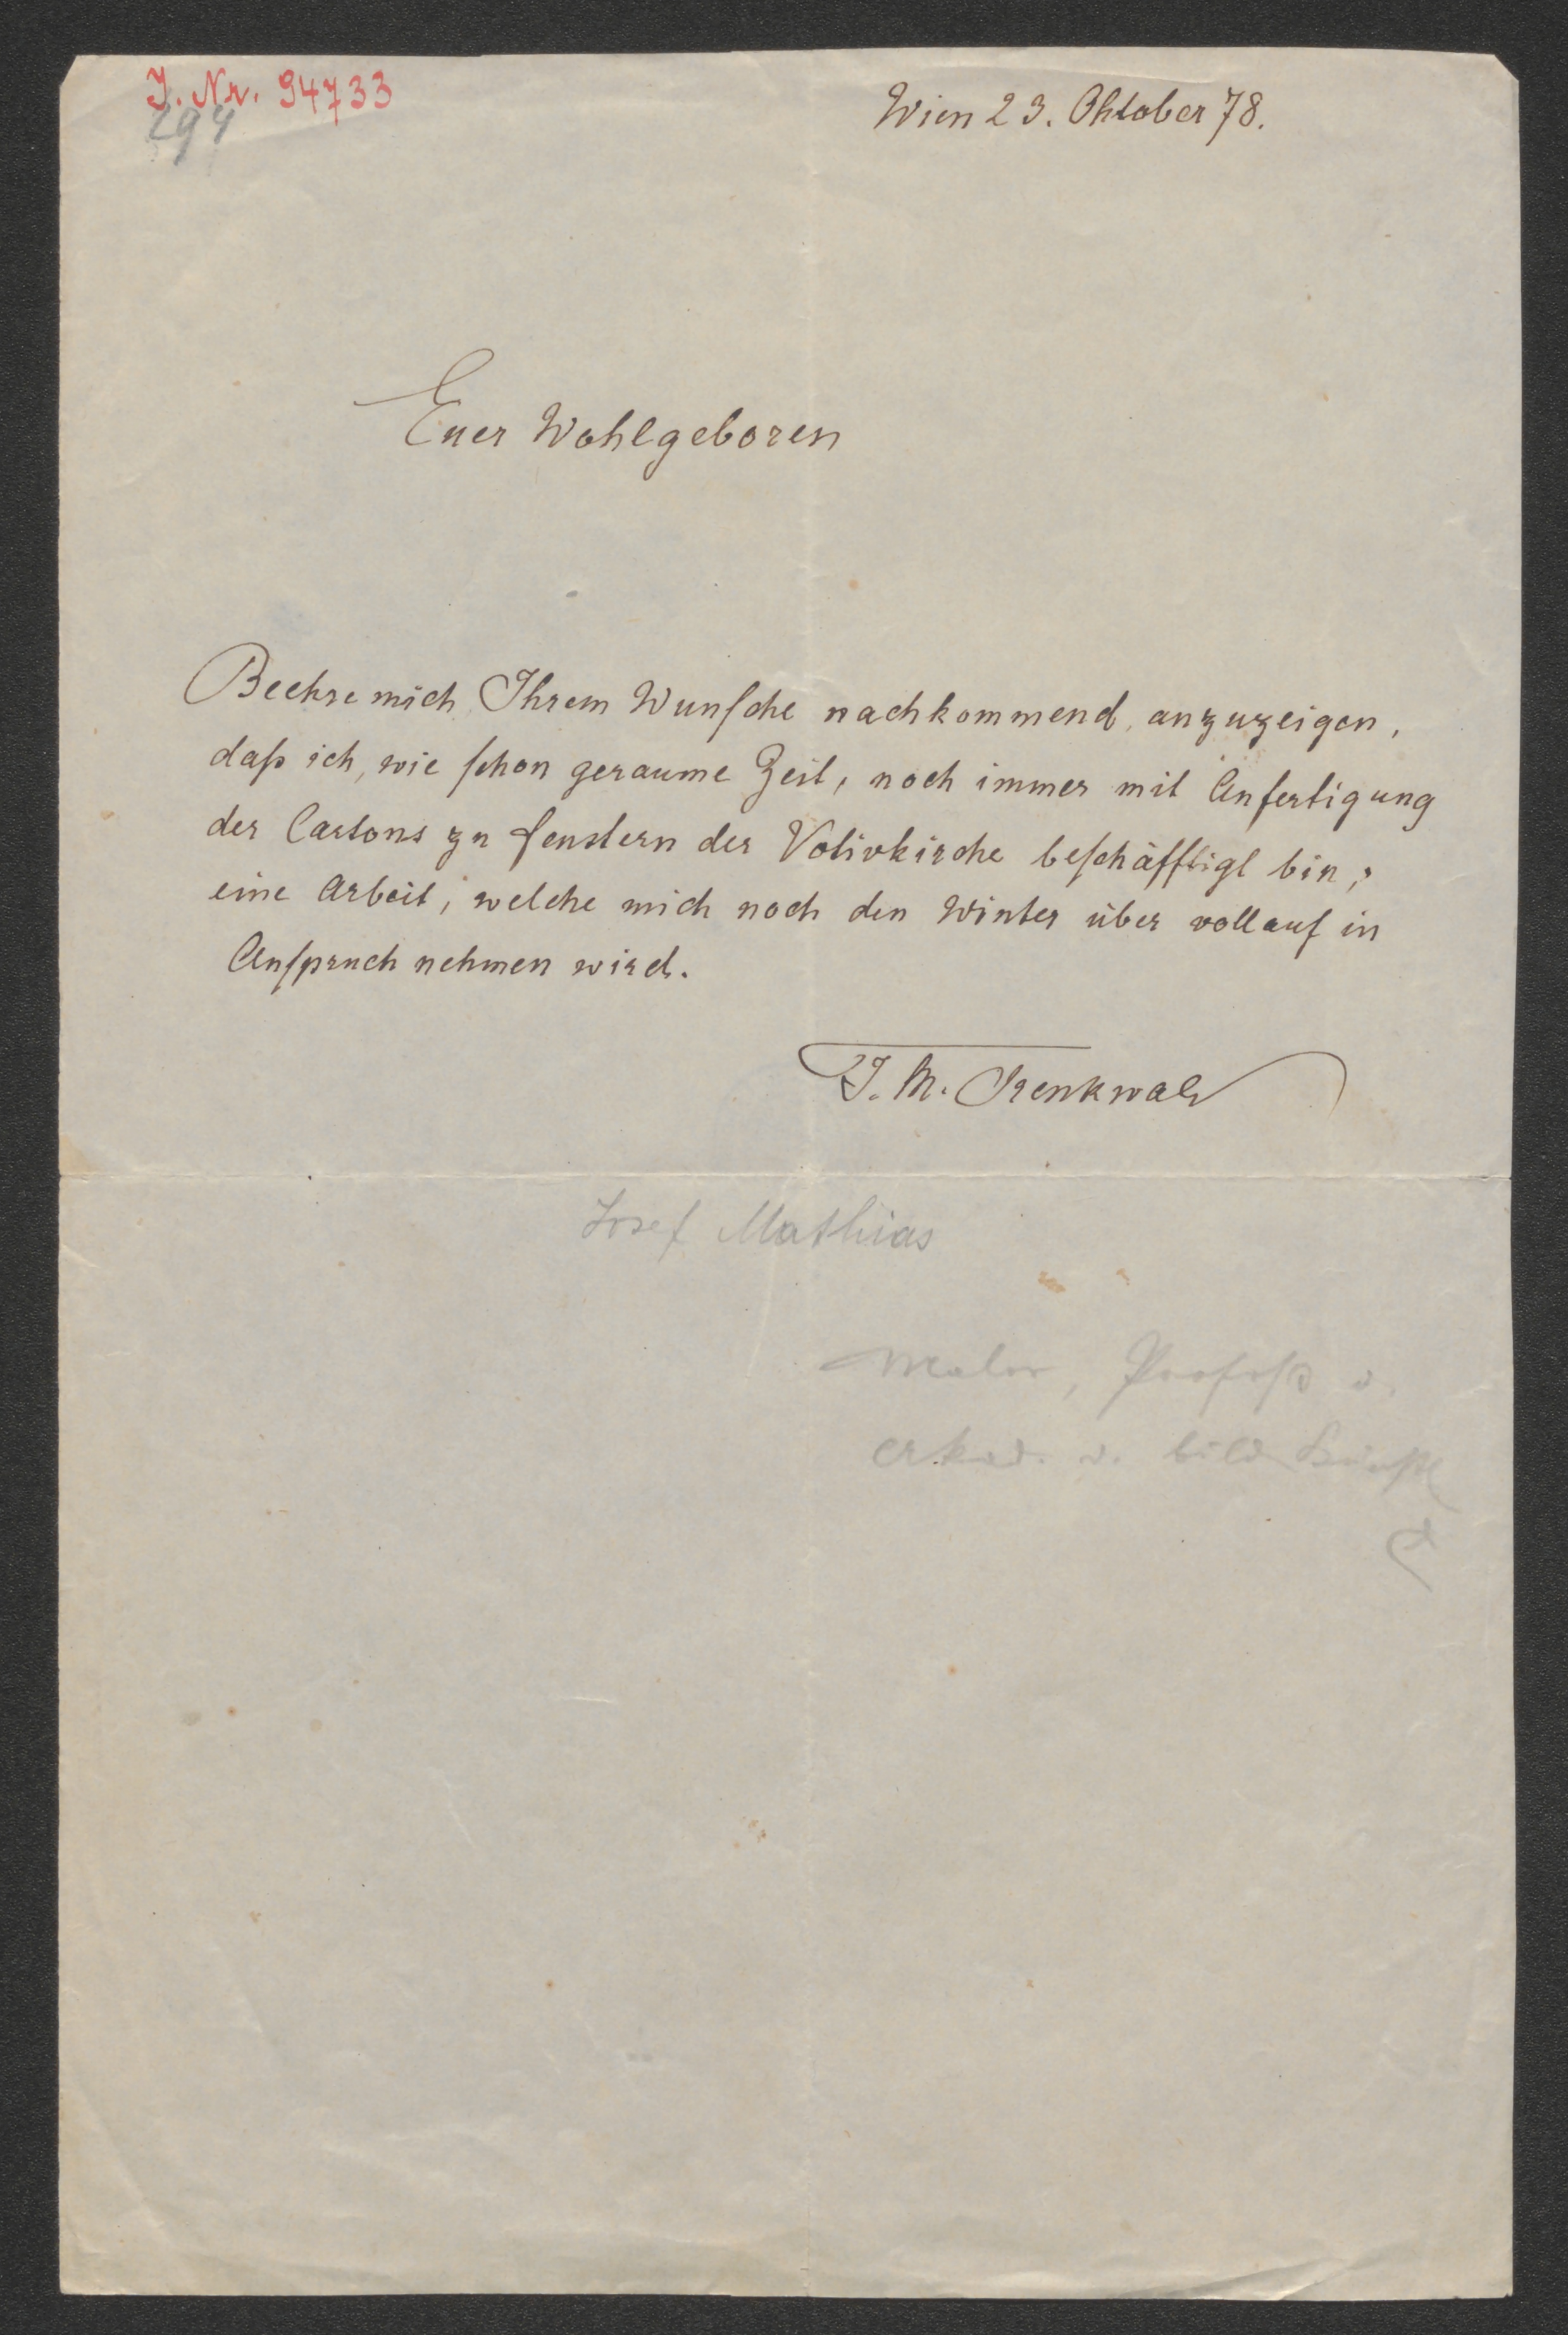 J. Nr. 94733
294
Wien 23. Oktober 78.
Euer Wohlgeboren
Beehre mich Ihrem Wunſche nachkommend, anzuzeigen,
daß ich, wie ſchon geraume Zeit, noch immer mit Anfertigung
der Cartons zu Fenstern der Votivkirche beſchäfftigt bin,
eine Arbeit, welche mich noch den Winter über vollauf in
Anſpruch nehmen wird.
J. M. Trenkwald
Josef Mathias
Maler, Profeß d.
Akad. d. bild Künſte